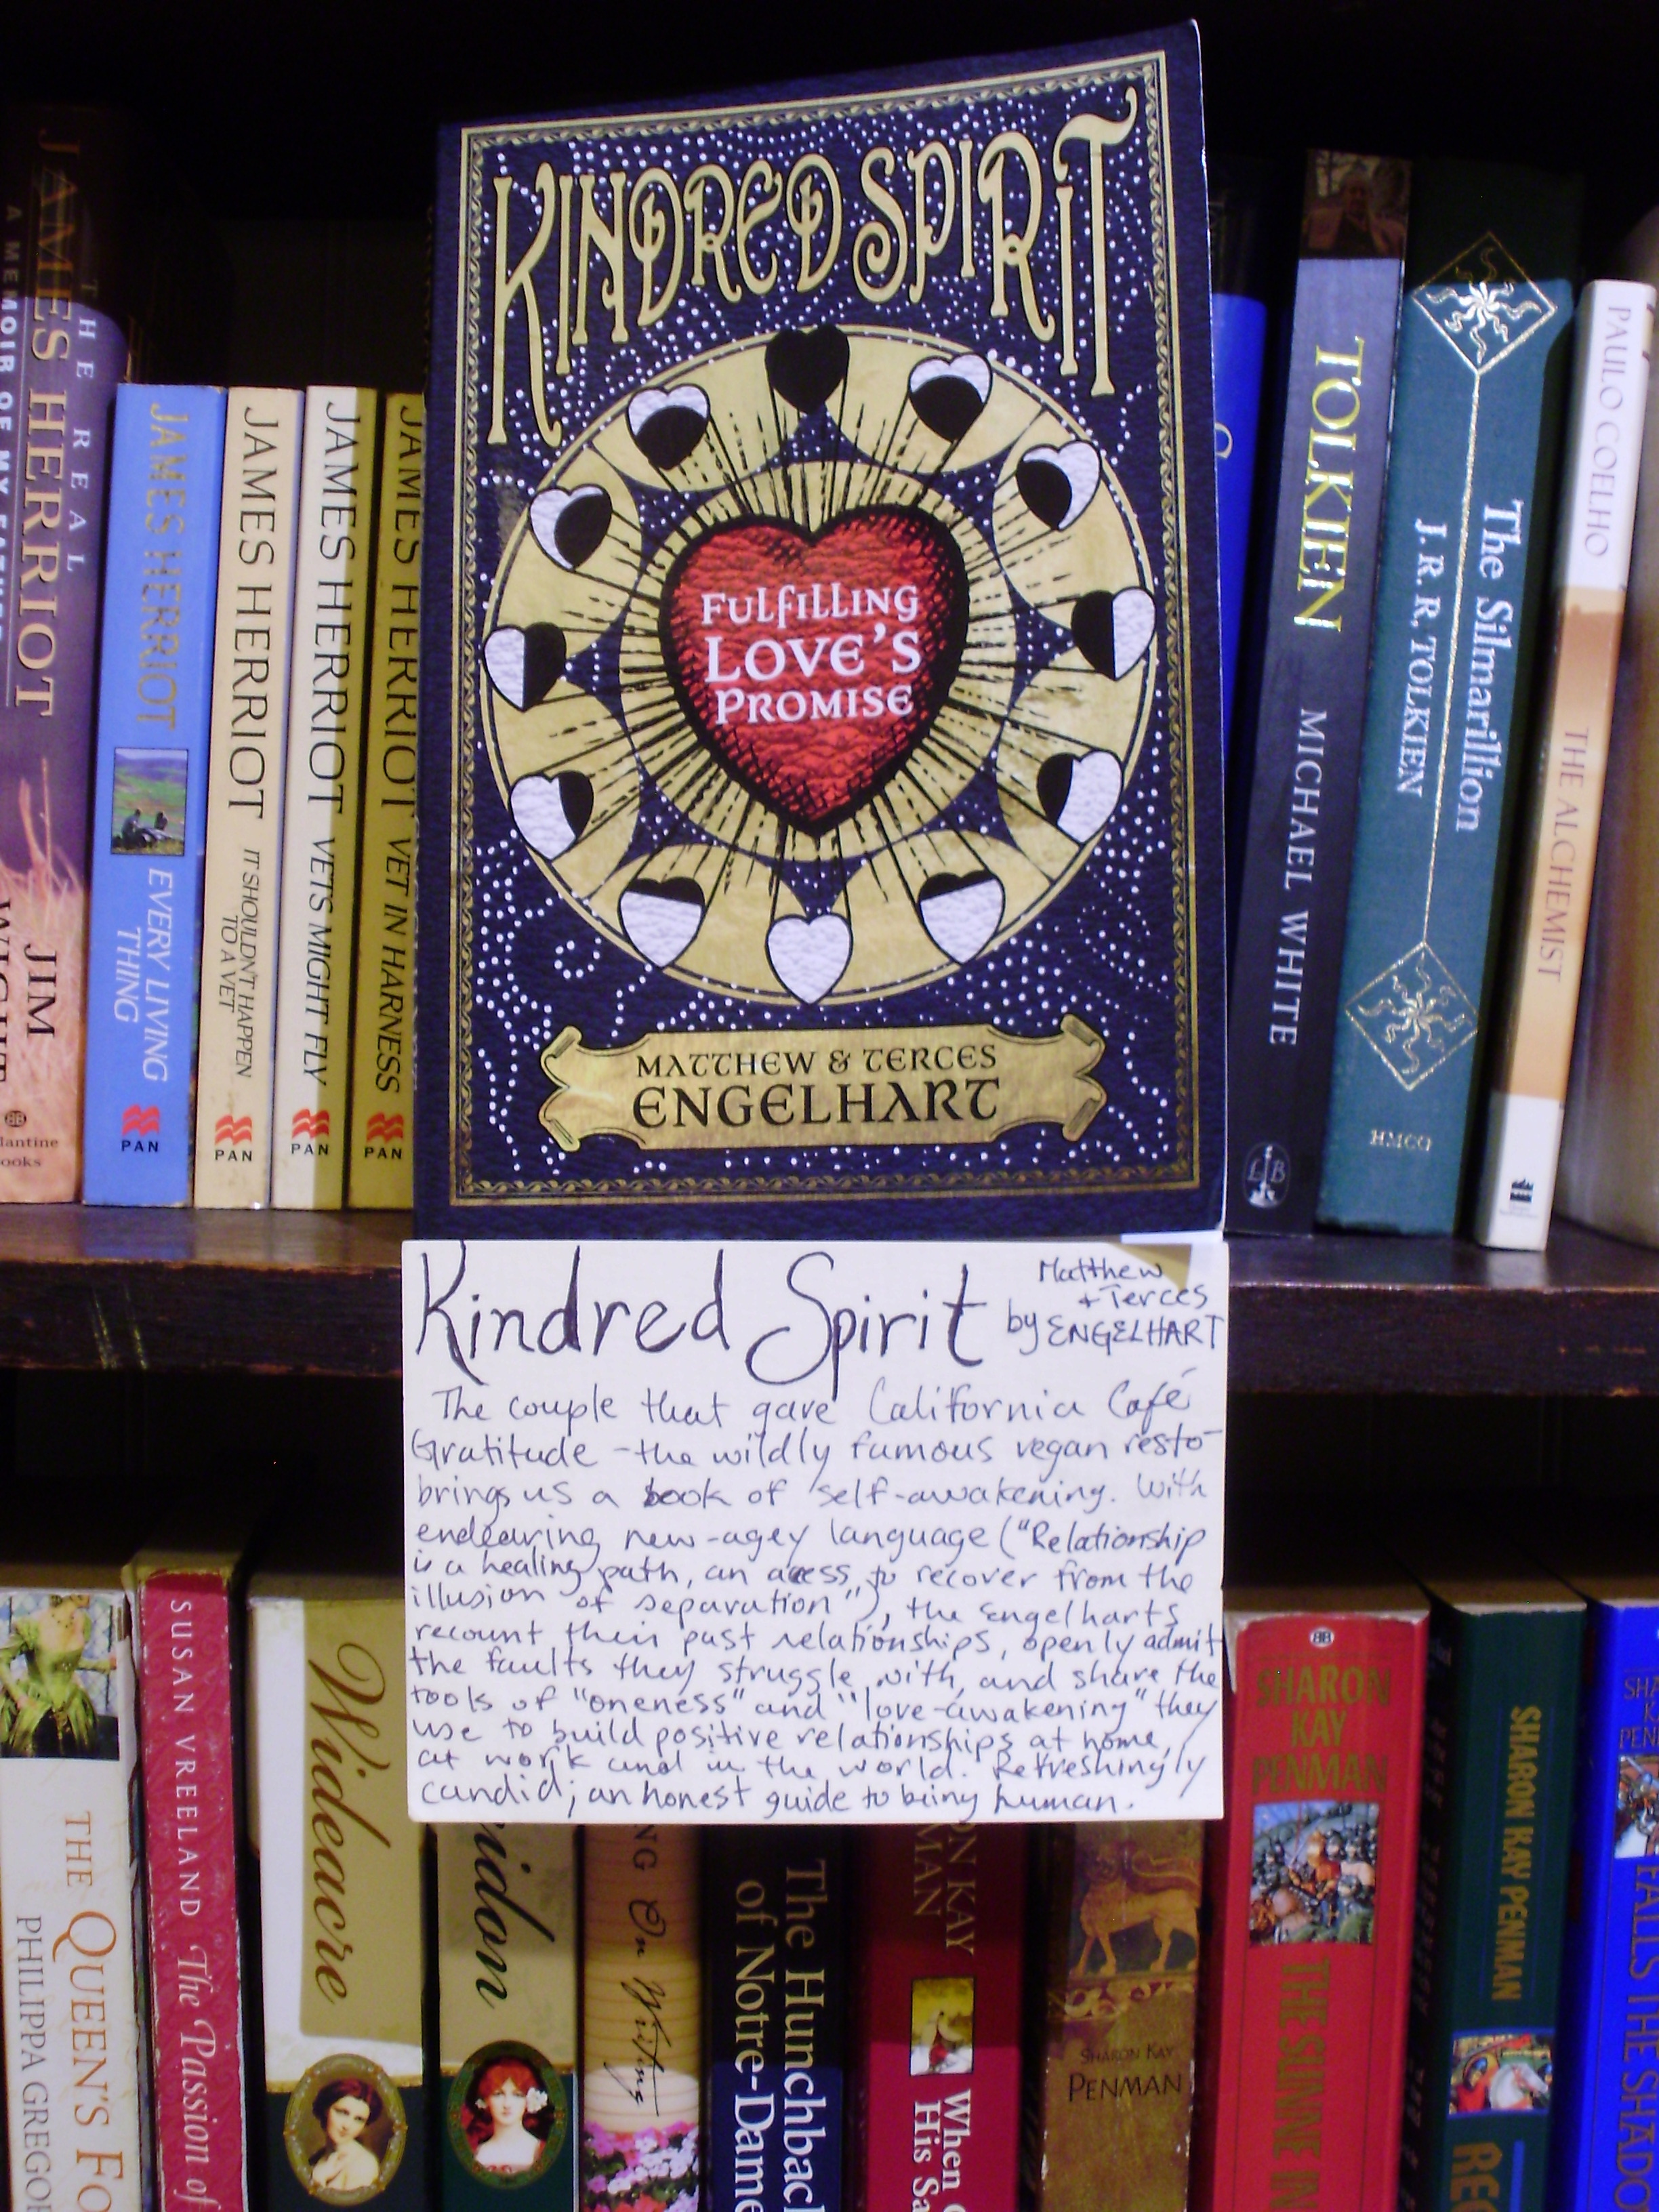 THE REAL
JAMES HERRIOT
A MEMOIR OF MY
JIM
BB
JAMES HERRIOT
EVERY LIVING
THING
PAN
JAMES HERRIOT
IT SHOULDN'T HAPPEN
TO A VET
PAN
JAMES HERRIOT VETS MIGHT FLY
PAN
JAMES HERRIOT VET IN HARNESS
PAN
KINDRED SPIRIT
FULFILLING
LOVE'S
PROMISE
MATTHEW & TERCES
ENGELHART
TOLKIEN MICHAEL WHITE
LB
The Silmarillion
J. R. R. TOLKIEN
HMCO
PAULO COELHO THE ALCHEMIST
Kindred Spirit by Matthew
+ Terces
ENGELHART
The couple that gave California Café
Gratitude - the wildly famous vegan resto-
brings us a book of self-awakening. With
endearing new-agey language ("Relationship
is a healing path, an access to recover from the
illusion of separation"), the Engelharts
recount their past relationships, openly admit
the faults they struggle with, and share the
tools of "oneness" and "love-awakening" they
use to build positive relationships at home,
at work and in the world. Refreshingly
candid; an honest guide to being human.
THE QUEEN'S FO
PHILIPPA GREGOR
SUSAN VREELAND The Passion of
Wideacre
idon
NG On Writing
The Hunchbac
of Notre-Dame
ON KAY
MAN
When C
His Sa
SHARON KAY
PENMAN
BB
SHARON
KAY
PENMAN
THE SUNNE IN
SHARON KAY PENMAN
REC
SHA
K
PEN
FALLS THE SHADO